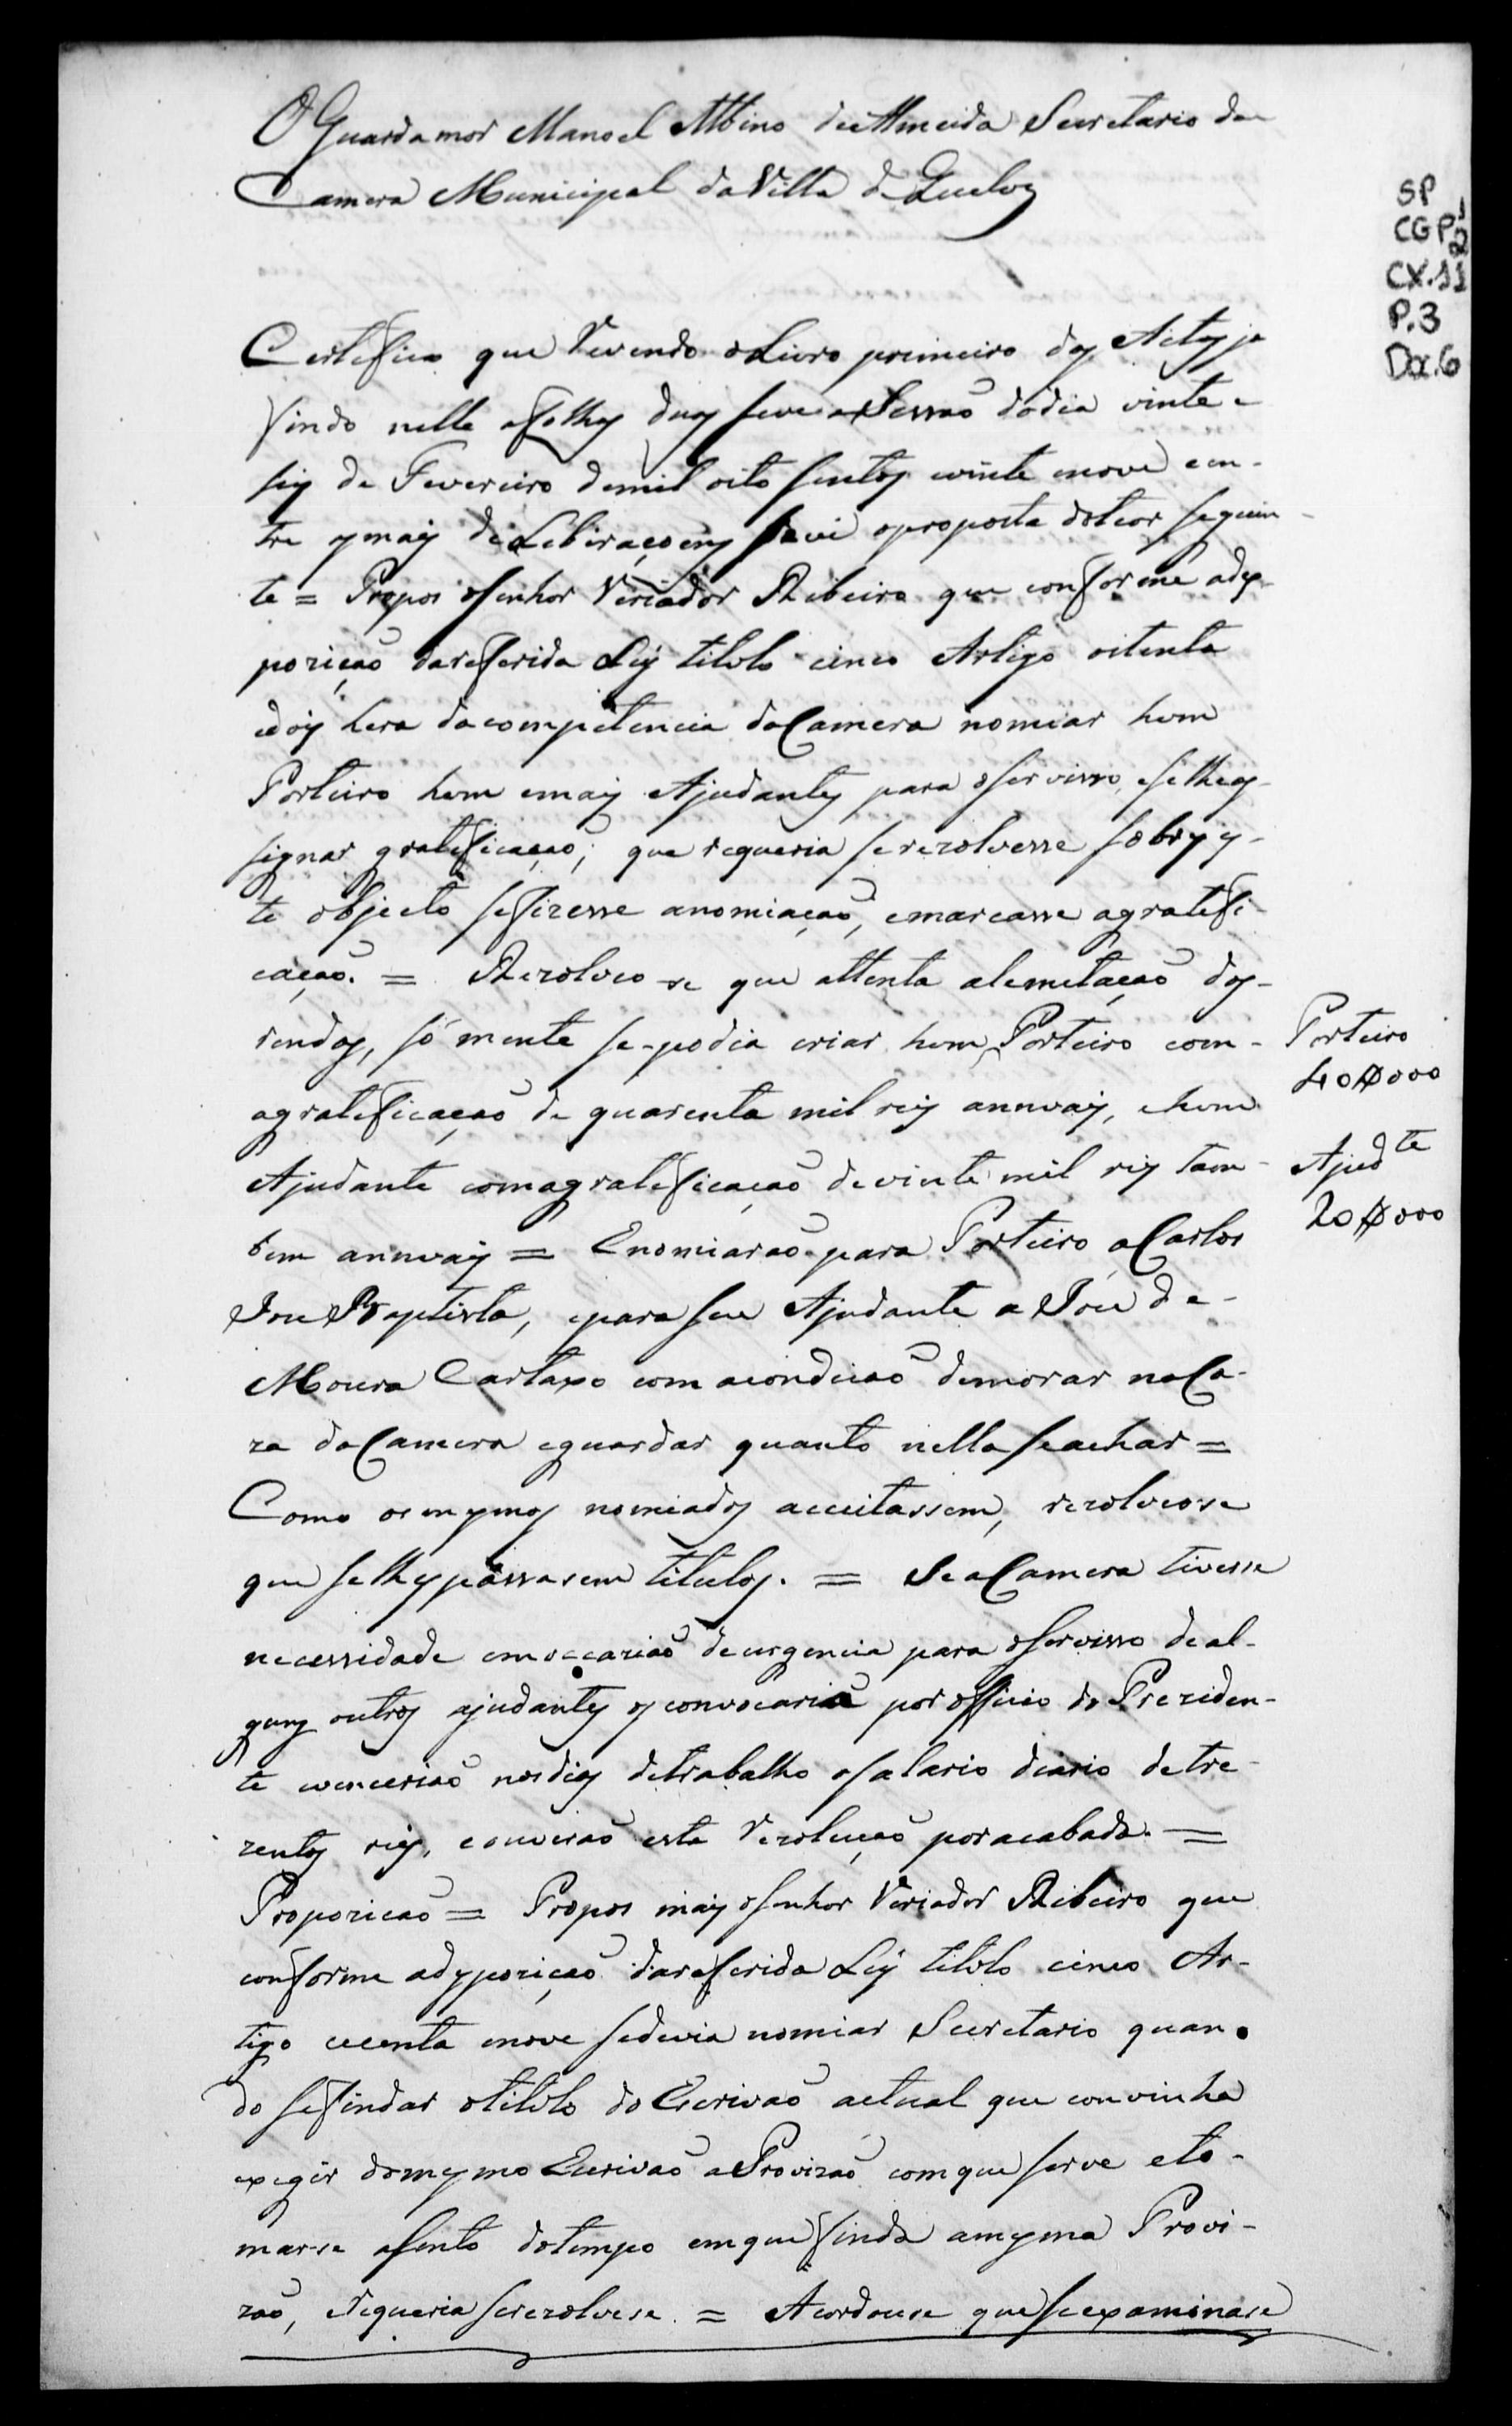 O Guarda mor Manoel Albino de Almeida Secretario da
Camera Municipal da Villa de Queloz
SP
CGP 1/2
CX.11
P.3
Dox.6
Certefico que Revendo o Livro primeiro das Actas ja
findo nelle a folhas duas sevê a Sessaõ do dia vinte e
seis de Fevereiro de mil oito sentos evinte enove een-
tre os mais deLiberaçoens se vê a proposta do theor seguin-
te = Propos o senhor Veriador Ribeiro que conforme a des-
poziçaõ da referida Ley titolo cinco Artigo oitenta
edois hera da competencia da Camera nomiar hum
Porteiro hum emais Ajudantes para o servisso, e se lhe as-
signar gratificaçaõ; que requeria se rezolvesse sobre es-
te objecto se fizesse a nomiaçaõ, e marcasse a gratefi-
caçaõ. = Rezolveo-se que attenta a lemetaçaõ das-
rendas, só mente se-podia criar hum Porteiro com-
a gratificaçaõ de quarenta mil reis annuais, e hum
Ajudante com a gratificaçaõ de vinte mil reis tam-
bem annuais = E nomiaraõ para Porteiro a Carlos
Jose Baptista, e para seu Ajudante a Jose de-
Moura Cartaxo com a condicaõ de morar na Ca-
za da Camera e guardar quanto nella se achar =
Como os mesmos nomiados acceitassem, rezolveose
que se lhes passasem titulos. = Se a Camera tivesse
necessidade em occaziaõ de urgencia para o servisso de al-
guns outros ajudantes os convocaria por officio do Preziden-
te e venceriaõ nos dias de trabalho o salario diario de tre-
zentos reis, e ouveraõ esta Rezoluçaõ por acabada. =
Propozicaõ = Propos mais o senhor Veriador Ribeiro que
conforme a despoziçaõ da referida Ley titolo cinco Ar-
tigo cecenta enove se devia nomiar Secretario quan-
do se findar o titolo do Escrivaõ actual que convinha
exegir do mesmo Escrivaõ a Provizaõ com que serve e to-
mar-se asento do tempo em que finda a mesma Provi-
zaõ, e Requeria se rezolvese. = Acordouse que se examinase
Porteiro
40$000
Ajud.te
20$000